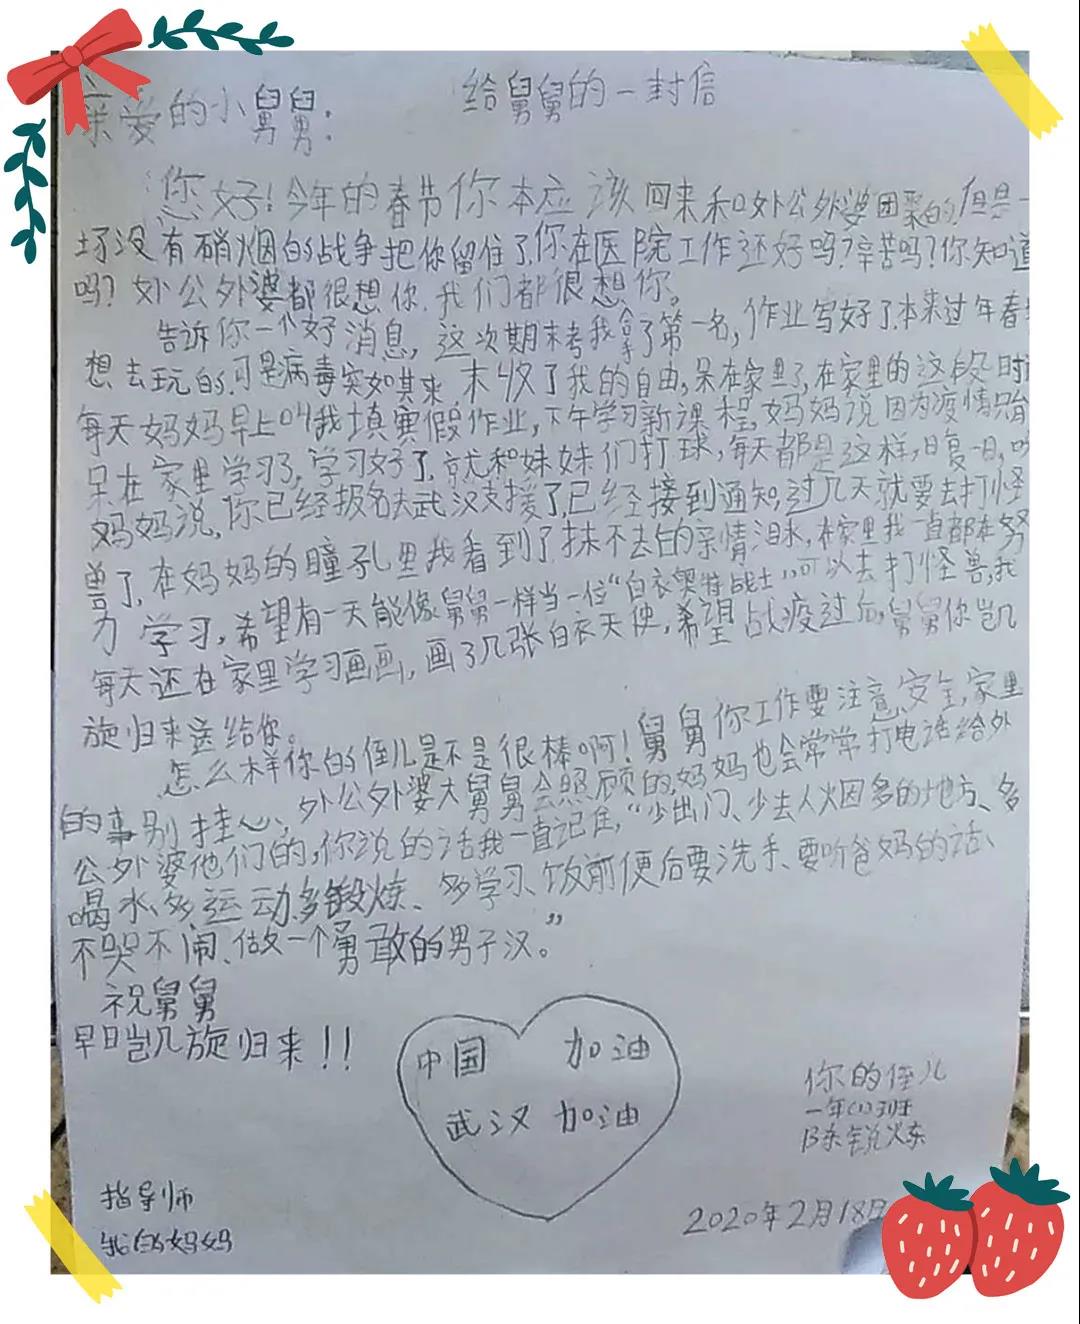 给舅舅的一封信
亲爱的小舅舅：
您好！今年的春节你本应该回来和外公外婆团聚的，但是一
场没有硝烟的战争把你留住了，你在医院工作还好吗？辛苦吗？你知道
吗？外公外婆都很想你，我们都很想你。
告诉你一个好消息，这次期末考我拿了第一名，作业写好了，本来过年春
想去玩的，可是病毒突如其来 末收了我的自由，呆在家里了，在家里的这段时
每天妈妈早上叫我填寒假作业，下午学习新课程，妈妈说因为疫情只能
呆在家里学习了，学习好了，就和妹妹们打球，每天都是这样，日复一日，
妈妈说，你已经报名去武汉支援了，已经接到通知，过几天就要去打怪
兽了，在妈妈的瞳孔里我看到了抹不去的亲情泪水，在家里我一直都在努
力学习，希望有一天能像舅舅一样当一位“白衣奥特战士”，可以去打怪兽，我
每天还在家里学习画画，画了几张白衣天使，希望战疫过后，舅舅你凯
旋归来送给你。
怎么样你的侄儿是不是很棒啊！舅舅你工作要注意安全，家里
的事别挂心，外公外婆大舅舅会照顾的，妈妈也会常常打电话给外
公外婆他们的，你说的话我一直记住，“少出门、少去人火因多的地方、多
喝水、多运动、多锻炼、多学习、饭前便后要洗手、要听爸妈的话、
不哭不闹、做一个勇敢的男子汉。”
祝舅舅
早日凯旋归来！！
中国 加油
武汉 加油
你的侄儿
一年(1)班
陈锐烁
指导师
我的妈妈
2020年2月18日